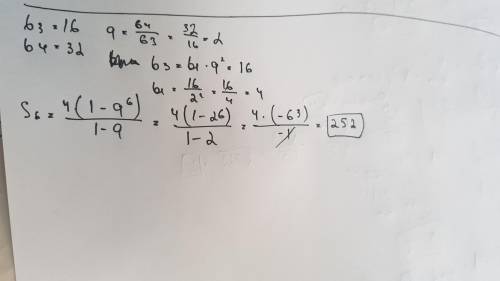 b3 = 16 q = b4/b3 = 32/16 = 2
b4 = 32 b3 = b1 · q² = 16
b1 = 16/2² = 16/4 = 4
S6 = 4(1 - q⁶)/1 - q = 4(1 - 26)/1 - 2 = 4 · (-63)/-1 = 252